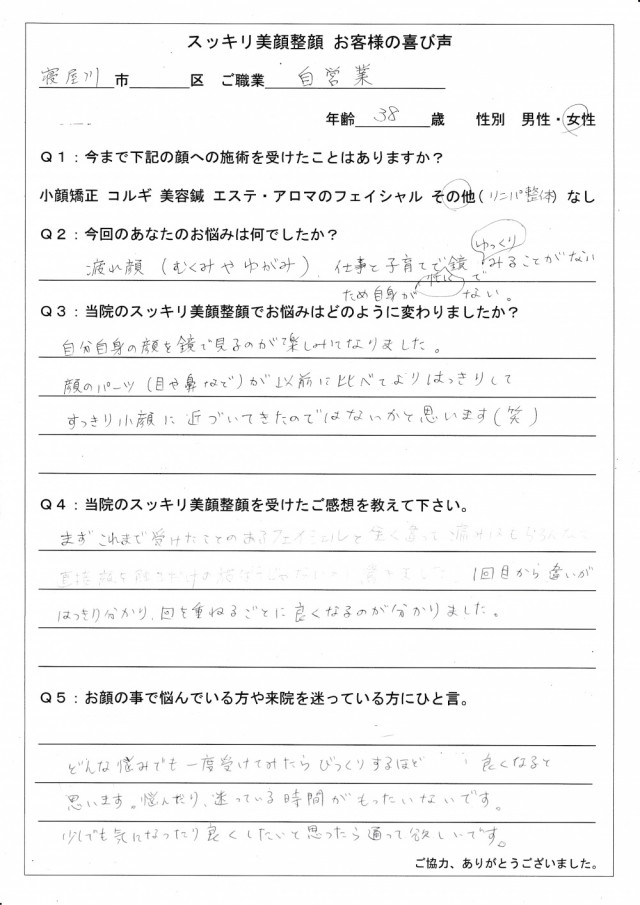 スッキリ美顔整顔 お客様の喜び声
寝屋川市 区 ご職業 自営業
年齢 38 歳 性別 男性・女性
Q1:今まで下記の顔への施術を受けたことはありますか?
小顔矯正 コルギ 美容鍼 エステ・アロマのフェイシャル その他(リンパ整体) なし
Q2:今回のあなたのお悩みは何でしたか?
ゆっくり
疲れ顔 (むくみやゆがみ)、仕事と子育てで鏡 みることがない
ため自身が ない。
Q3:当院のスッキリ美顔整顔でお悩みはどのように変わりましたか?
自分自身の顔を鏡で見るのが楽しみになりました。
顔のパーツ(目や鼻など)が以前に比べてよりはっきりして
すっきり小顔に近づいてきたのではないかと思います(笑)
Q4:当院のスッキリ美顔整顔を受けたご感想を教えて下さい。
まずこれまで受けたことのあるフェイシャルと全く違って
1回目から違いが
はっきり分かり、回を重ねるごとに良くなるのが分かりました。
Q5:お顔の事で悩んでいる方や来院を迷っている方にひと言。
どんな悩みでも一度受けてみたらびっくりするほど 良くなると
思います。悩んだり、迷っている時間がもったいないです。
少しでも気になったり良くしたいと思ったら通って欲しいです。
ご協力、ありがとうございました。